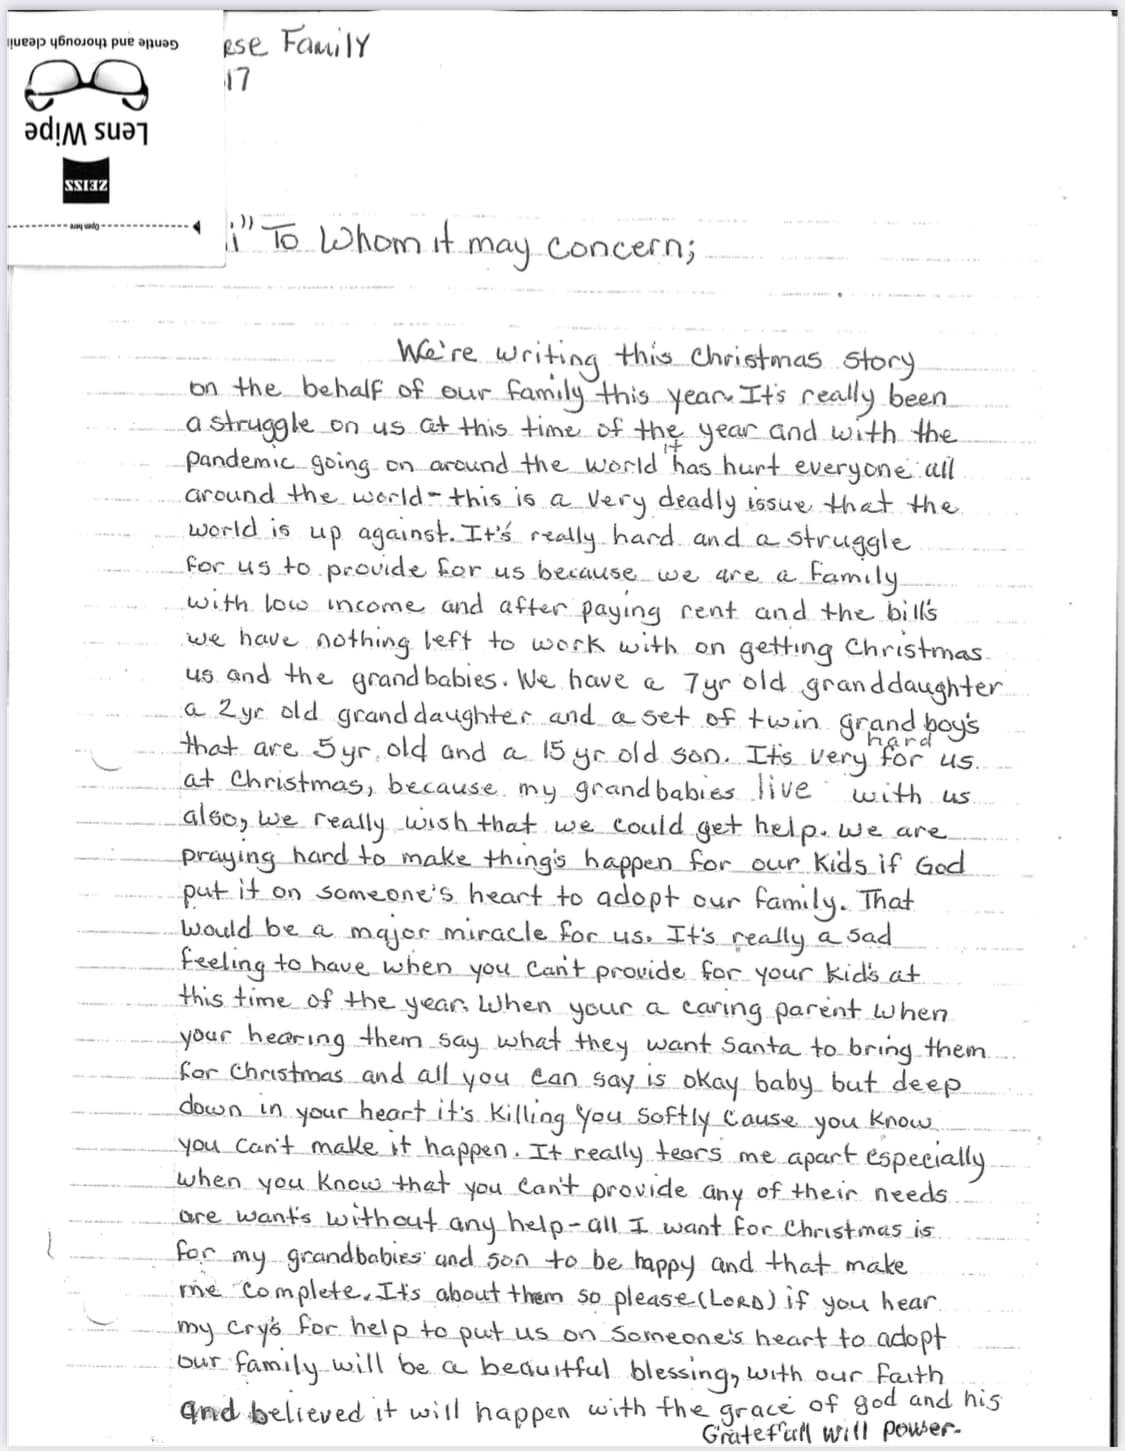 Gentle and thorough cleani
Lens Wipe
ZEISS
Open here
ese Family
17
i" To Whom it may concern;
We're writing this Christmas story
on the behalf of our family this year. It's really been
a struggle on us at this time of the year and with the
pandemic going on around the world it has hurt everyone all
around the world - this is a very deadly issue that the
world is up against. It's really hard and a struggle
for us to provide for us because we are a family
with low income and after paying rent and the bill's
we have nothing left to work with on getting Christmas
us and the grandbabies. We have a 7yr old granddaughter
a 2yr old granddaughter and a set of twin grand boy's
that are 5yr old and a 15yr old son. It's very hard for us
at Christmas, because my grandbabies live with us
also, we really wish that we could get help. We are
praying hard to make thing's happen for our kids if God
put it on someone's heart to adopt our family. That
would be a major miracle for us. It's really a sad
feeling to have when you can't provide for your kid's at
this time of the year. When your a caring parent when
your hearing them say what they want Santa to bring them
for Christmas and all you can say is okay baby but deep
down in your heart it's killing you softly cause you know
you can't make it happen. It really tears me apart especially
when you know that you can't provide any of their needs
are want's without any help - all I want for Christmas is
for my grandbabies and son to be happy and that make
me complete. It's about them so please (LORD) if you hear
my cry's for help to put us on someone's heart to adopt
our family will be a beauitful blessing, with our faith
and believed it will happen with the grace of god and his
Gratefull will power.